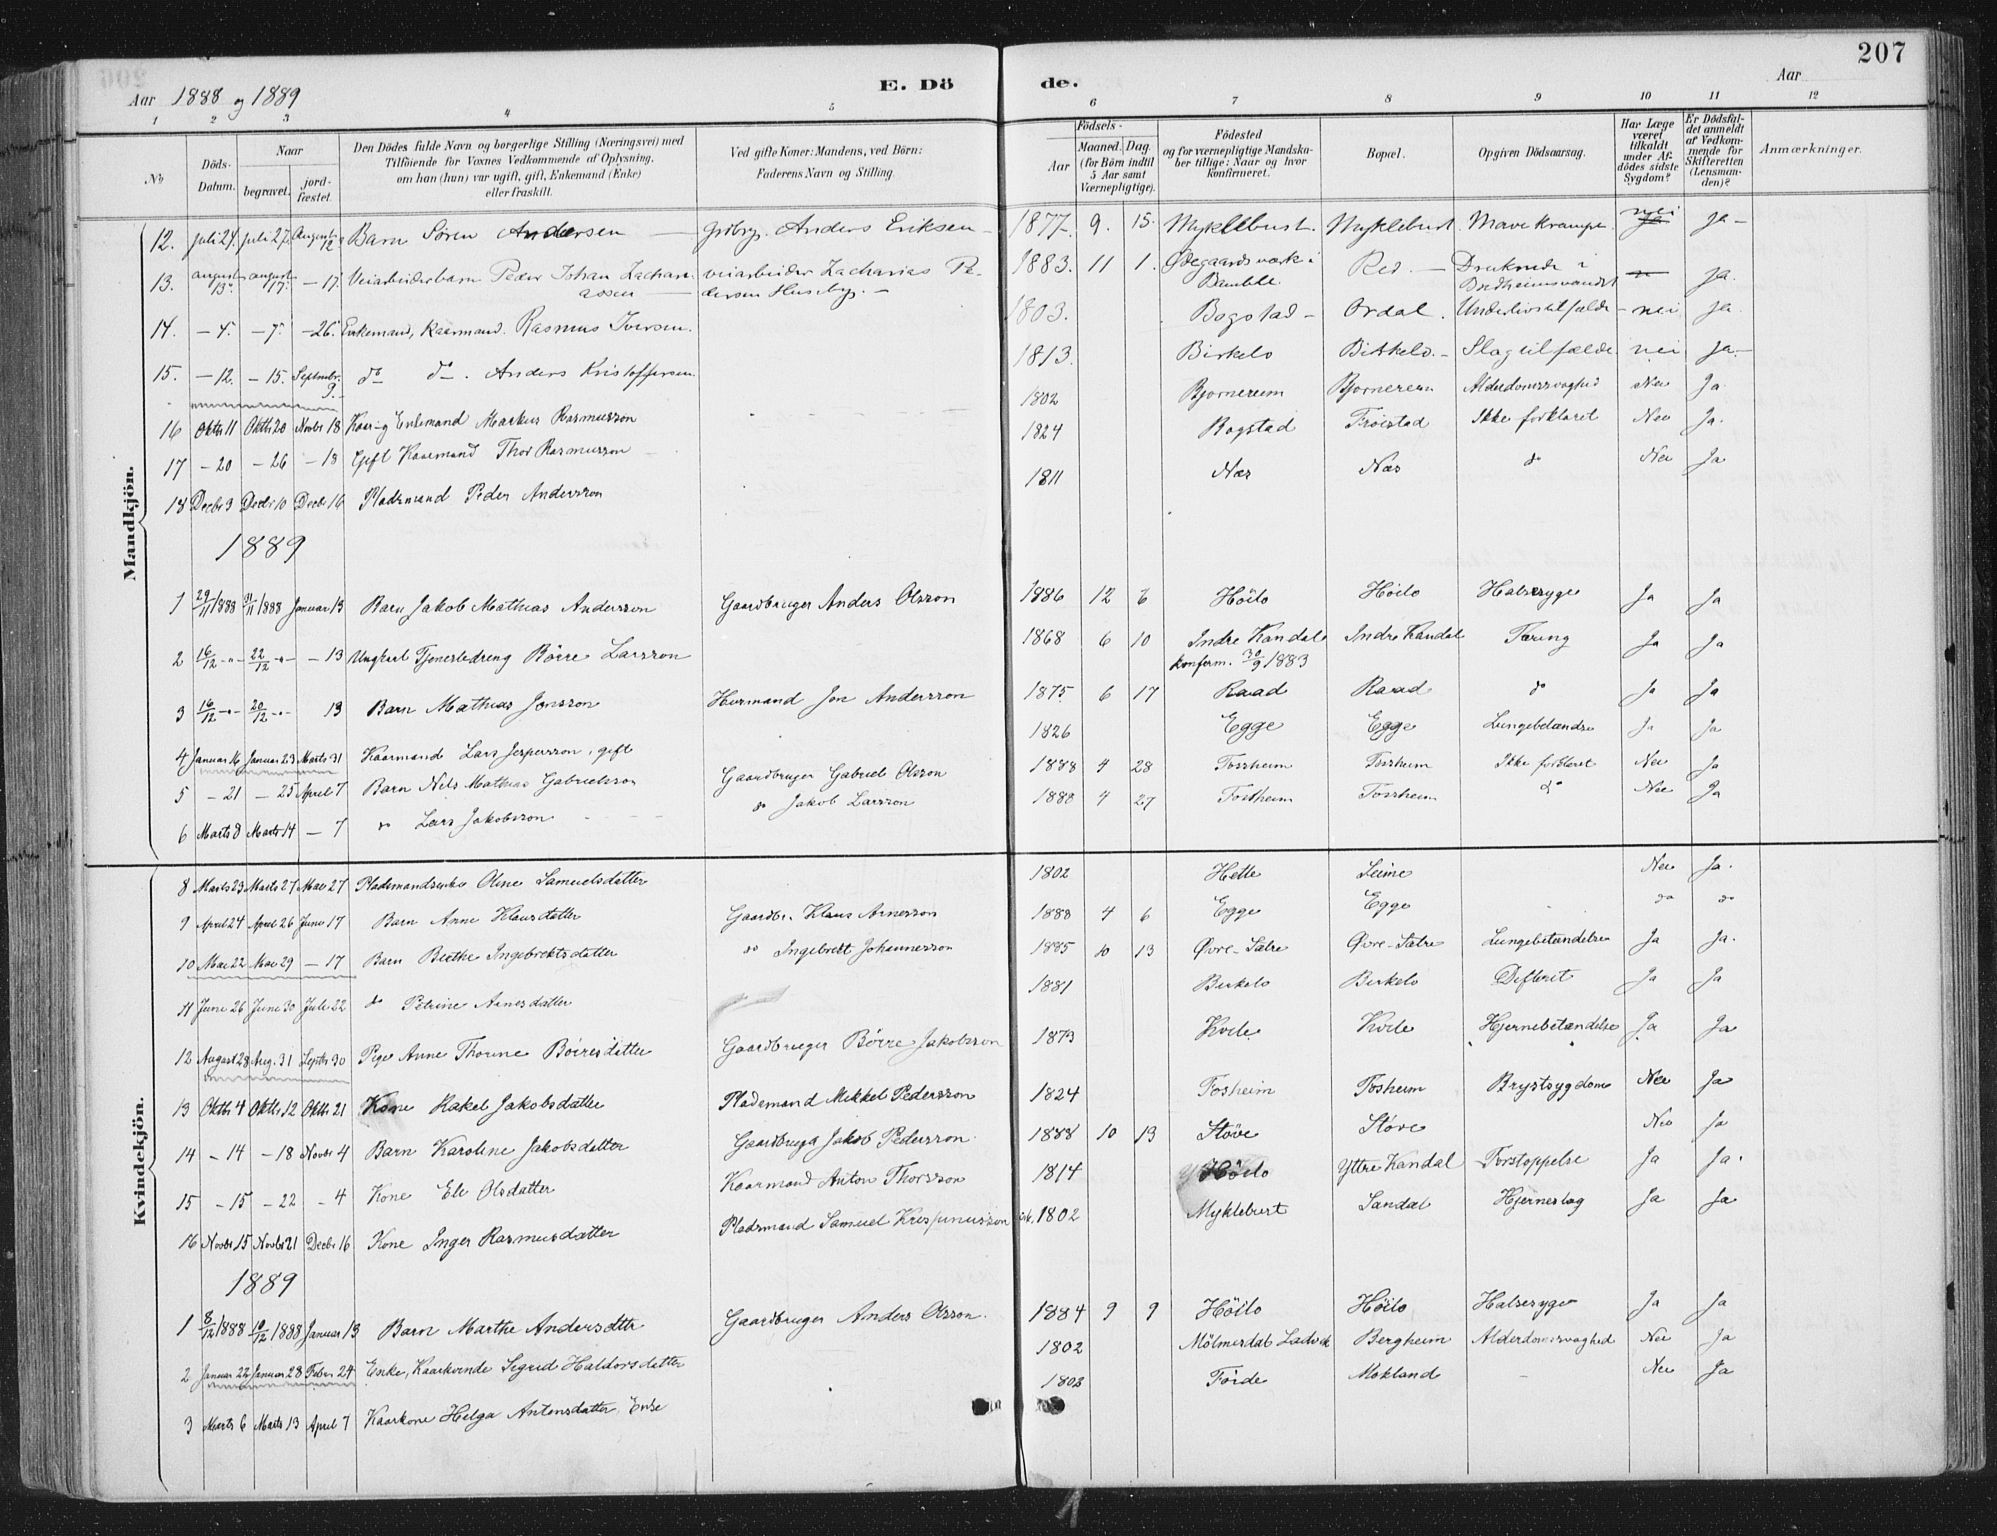 207
Aar 1888 og 1889
E. Dö de.
Aar
1 2 3 4 5 6 7 8 9 10 11 12
No
Döds-Datum.
Naar
begravet.
jordfæstet.
Den Dödes fulde Navn og borgerlige Stilling (Næringsvei) med
Tilföiende for Voxnes Vedkommende af Oplysning,
om han (hun) var ugift, gift, Enkemand (Enke)
eller fraskilt.
Ved gifte Koner: Mandens, ved Börn:
Faderens Navn og Stilling.
Födsels-
Aar
Maaned. Dag.
(for Börn indtil
5 Aar samt
Værnepligtige).
Födested
og for værnepligtige Mandskaber tillige: Naar og hvor
konfirmeret.
Bopæl.
Opgiven Dödsaarsag.
Har Læge
været
tilkaldt
under Afdödes sidste
Sygdom?
Er Dödsfaldet anmeldt
af Vedkommende for
Skifteretten
(Lensmanden)?
Anmærkninger.
Mandkjön.
12. Juli 24. Juli 27. August 12 Barn Sören Andersen — Grdbrg. Anders Eriksen — 1877. 9. 15. Myklebust. Myklebust. Mavekrampe. nei ja —
13. august 13. august 17. — 17. Veiarbeiderbarn Peder Johan Zachariassen veiarbeider Zacharias Pedersen Huseby. — 1883. 11 1. Ødegaards værk i Bamble. Red. — Druknede i ja.
14. — 4. — 7. — 26. Enkemand, kaarmand. Rasmus Iversen. 1803. Bogstad — Ordal. Underlivstilfælde — nei ja.
15. — 12. — 15. Septmbr. 9. do do. Anders Kristoffersen. 1813. Birkelo Birkelo. — Slagtilfælde. nei ja. —
16 Oktbr 11 Oktbr 20 Novbr 18 Enkemand Markus Rasmusson 1802 Bjornereim Bjornereim Alderdomssvaghed Nei Ja.
17 — 20 — 26 — 18 Gift Kaarmand Thor Rasmusson 1824 Bogstad Froistad Ikke forklaret Nei Ja.
18 Decbr 3 Decbr 10 Decbr 16 Pladsmand Peder Andersson 1811 Nes Nes do Nei Ja
1889
1 29/11 1888 /11 1888 Januar 13 Barn Jakob Mathias Andersson Gaardbruger Anders Olsson 1886 12 6 Höilo Höilo Halssyge Ja Ja
2 16/12 -"- 22/12 -"- — 13 Ungkarl Tjenestedreng Börre Larsson 1868 6 10 Indre Kandal Indre Kandal Tæring Ja Ja
konferm. 30/9 1883
3 16/12 -"- 20/12 -"- 13 Barn Mathias Jonsson Husmand Jon Andersson 1875 6 17 Raad Raad do Ja Ja
4 Januar 16 Januar 23 Marts 31 Kaarmand Lars Jespersson, gift 1826 Egge Egge Lungebetændse Ja Ja
5 — 21 — 25 April 7 Barn Nils Mathias Gabrielsson Gaardbruger Gabriel Olsson 1888 4 28 Fossheim Fossheim Ikke forklaret Nei Ja
6 Marts 8 Marts 14 — 7 do Lars Jakobsson do Jakob Larsson 1888 4 27 Fossheim Fossheim do Nei Ja
Kvindekjön.
8 Marts 23 Marts 27 Mai 27 Pladsmandsenke Oline Samuelsdatter 1802 Hette Leime Nei Ja.
9 April 24 April 26 Juni 17 Barn Anne Klausdatter Gaardbr. Klaus Arnesson 1888 4 6 Egge Egge do do
10 Mai 22 Mai 29 — 17 Barn Birthe Ingebrektsdatter do Ingebrett Johannesson 1885 10 13 Øvre-Sætre Øvre-Sætre Lungebetændelse Ja Ja.
11 Juni 26 Juni 30 Juli 22 do Petrine Arnesdatter 1881 Birkelo Birkelo Difterit Ja Ja
12 August 28 Aug. 31 Septbr 30 Pige Anne Thorine Börresdatter Gaardbruger Börre Jakobsson 1873 Kvile Kvile Hjernebetændelse Ja Ja
13 Oktbr 4 Oktbr 12 Oktbr 21 Kone Rakel Jakobsdatter Pladsmand Mikkel Pedersson 1824 Fosheim Fosheim Brystsygdom Nei Ja
14 — 14 — 18 Novbr 4 Barn Karoline Jakobsdatter Gaardbruger Jakob Pedersson 1888 10 13 Støve Støve Nei Ja
15 — 15 — 22 — 4 Kone Eli Olsdatter Kaarmand Anton Thorsson 1814 Höilo Yttre Kandal Forstoppelse Ja Ja.
16 Novbr 15 Novbr 21 Decbr 16 Kone Inger Rasmusdatter Pladsmand Samuel Krispinusson 1802 Myklebust Sandal Hjerneslag Ja Ja
1889
1 8/12 1888 10/12 1888 Januar 13 Barn Marthe Andersdtter Gaardbruger Anders Olsson. 1884 9 9 Höilo Höilo Halssyge Ja Ja
2 Januar 22 Januar 28 Febr 24 Enke, Kaarkvinde Sigrid Haldorsdatter 1802 Mölmesdal Bergheim Alderdomssvaghed Nei Ja
3 Marts 6 Marts 13 April 7 Kaarkone Helga Antonsdatter, Enke 1803 Förde Mokland — Nei Ja